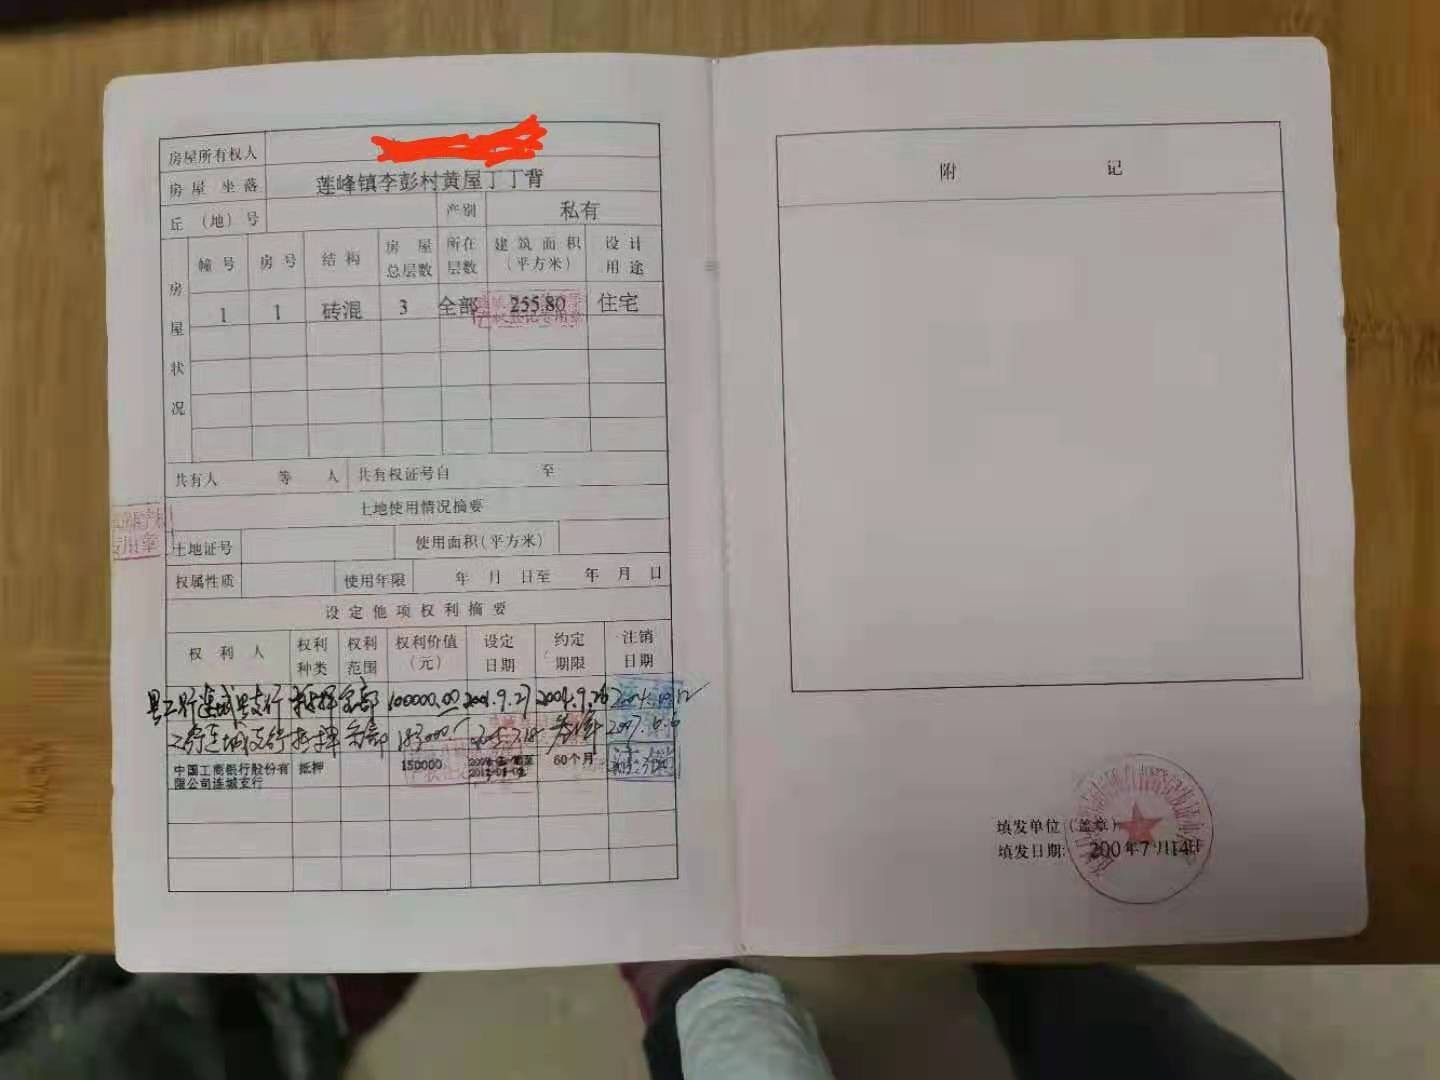 房屋所有权人
房屋坐落 莲峰镇李彭村黄屋丁丁背
丘（地）号 产别 私有
房屋状况
幢号 房号 结构 房屋总层数 所在层数 建筑面积（平方米） 设计用途
1 1 砖混 3 全部 255.80 住宅
共有人 等 人 共有权证号自 至
土地使用情况摘要
土地证号 使用面积（平方米）
权属性质 使用年限 年 月 日至 年 月 日
设定他项权利摘要
权利人 权利种类 权利范围 权利价值（元） 设定日期 约定期限 注销日期
县工行连城县支行 抵押 全部 100000.00 2001.9.27 2004.9.26
工行连城支行 抵押 全部 2007.6.6
中国工商银行股份有限公司连城支行 抵押 150000 60个月 注销
附记
填发单位（盖章）
填发日期: 200 年7月14日